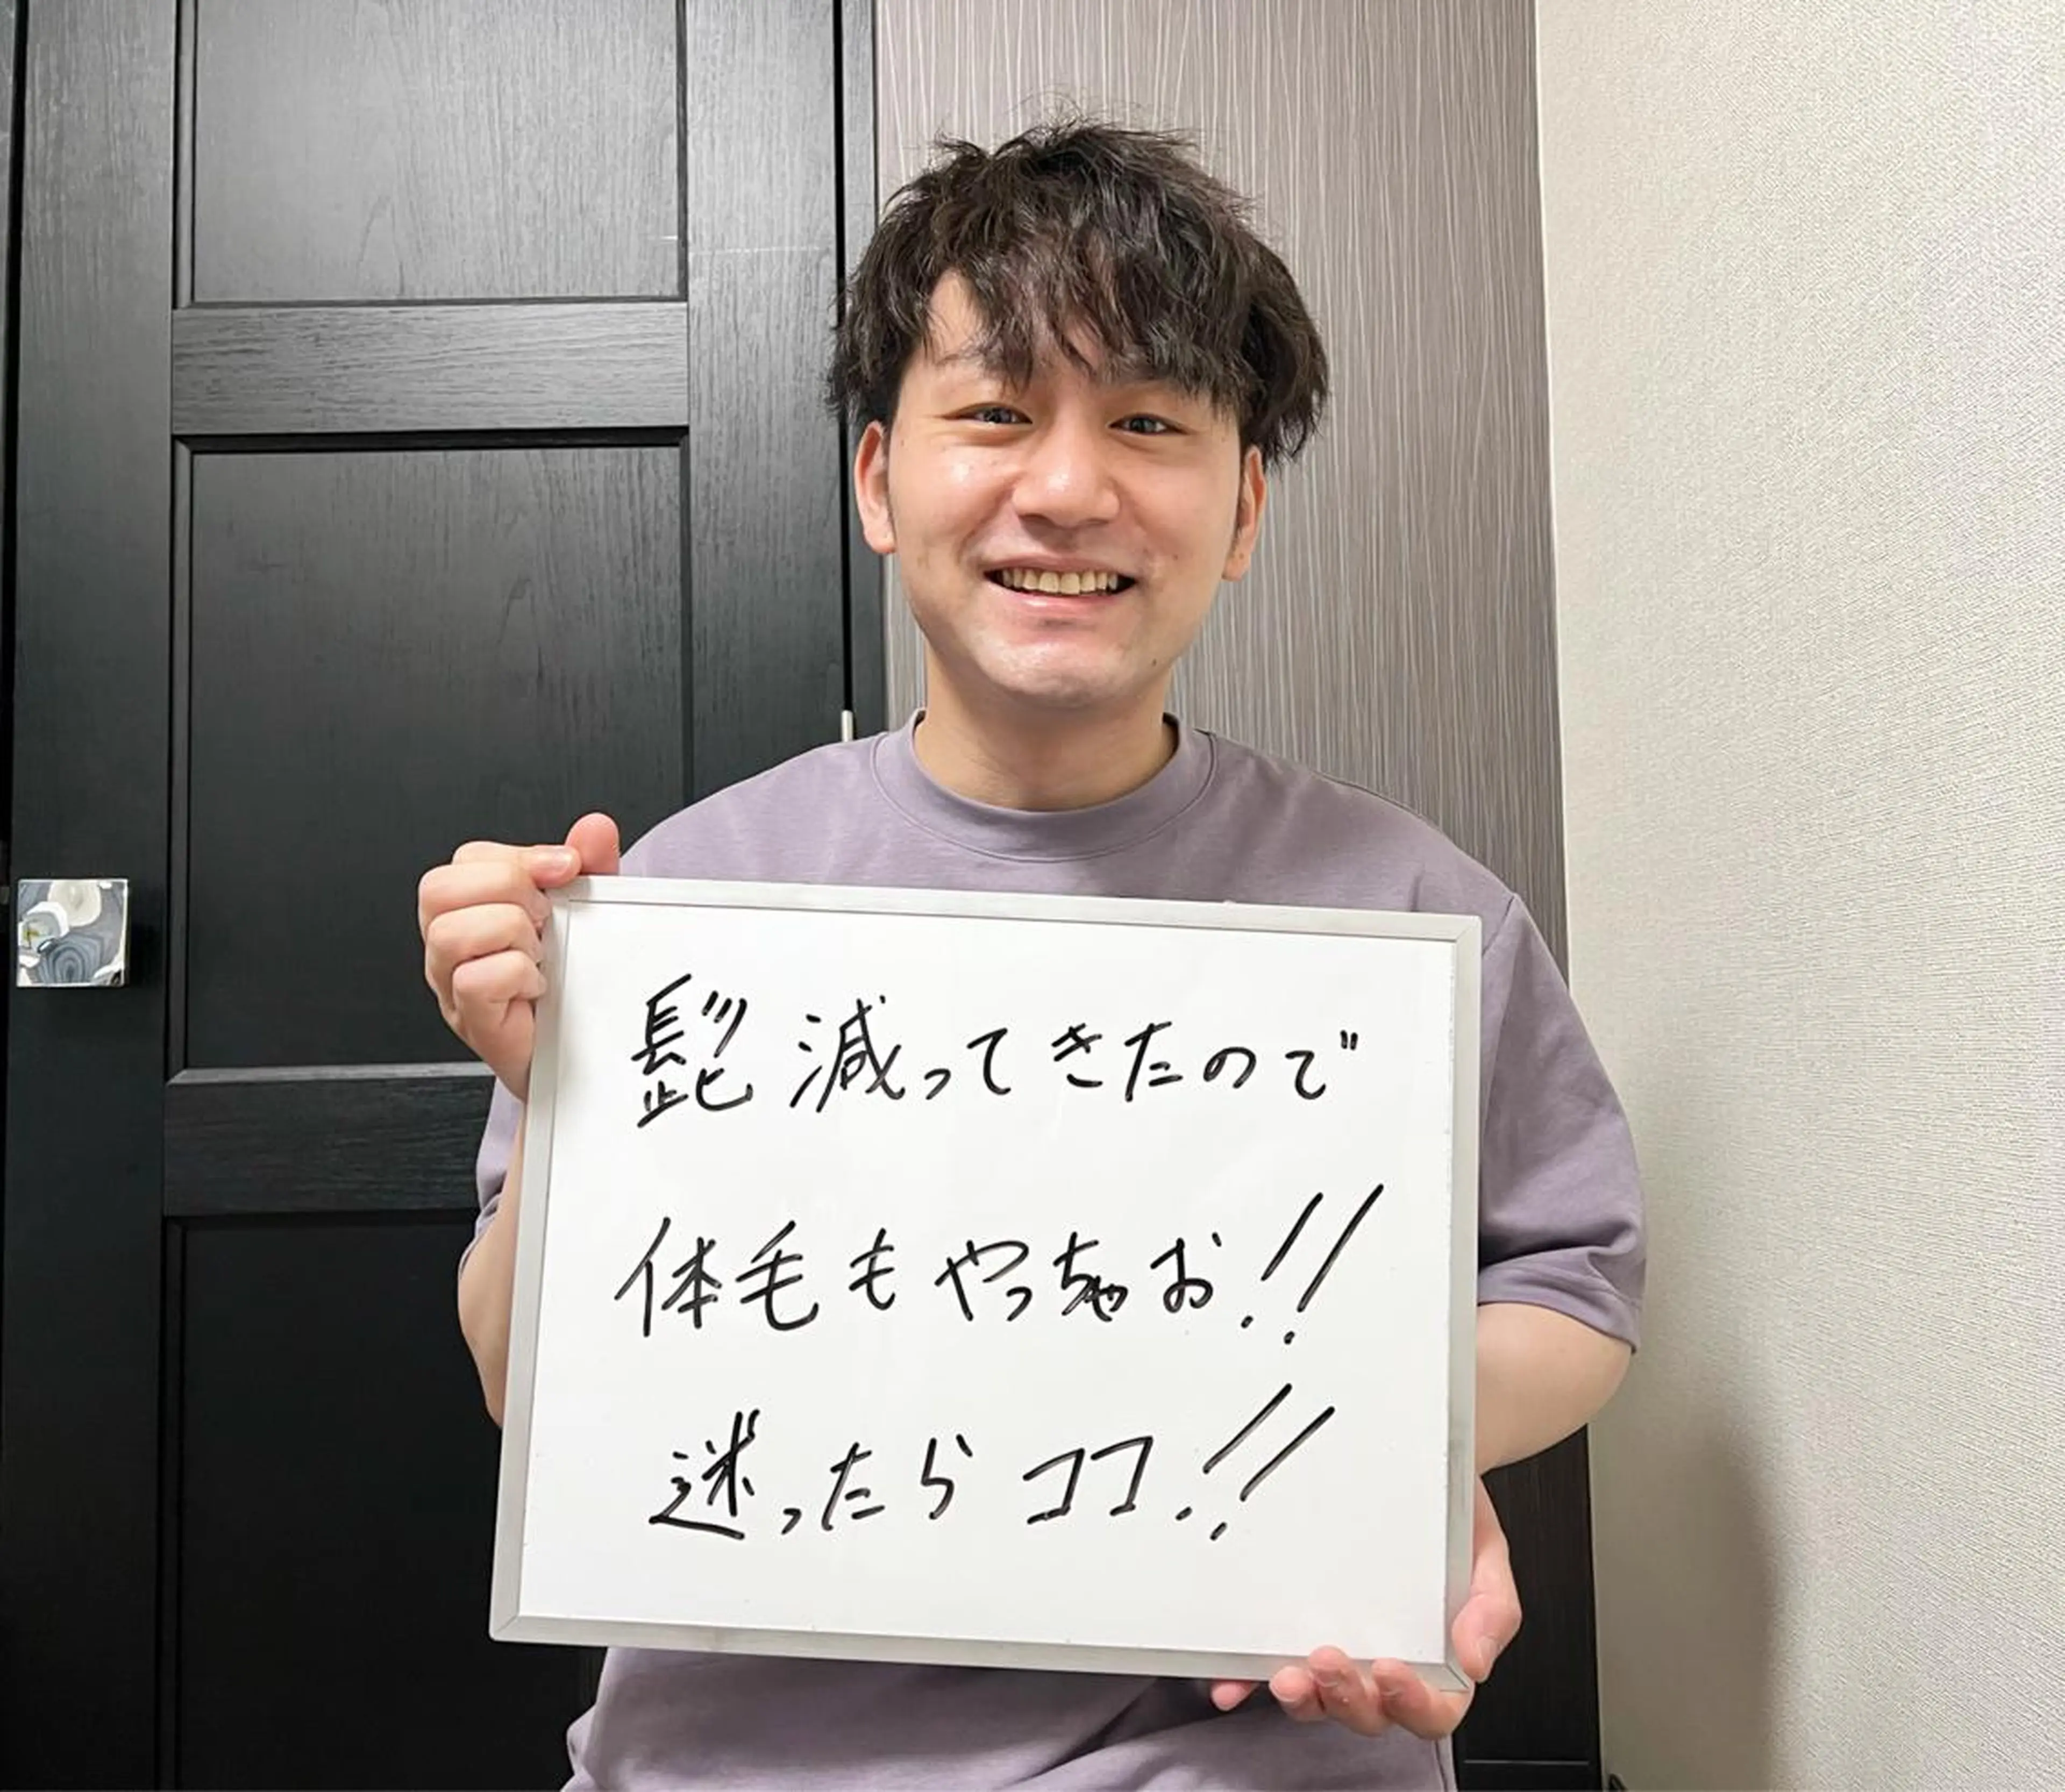 髭減ってきたので
体毛もやっちゃお!!
迷ったらココ!!